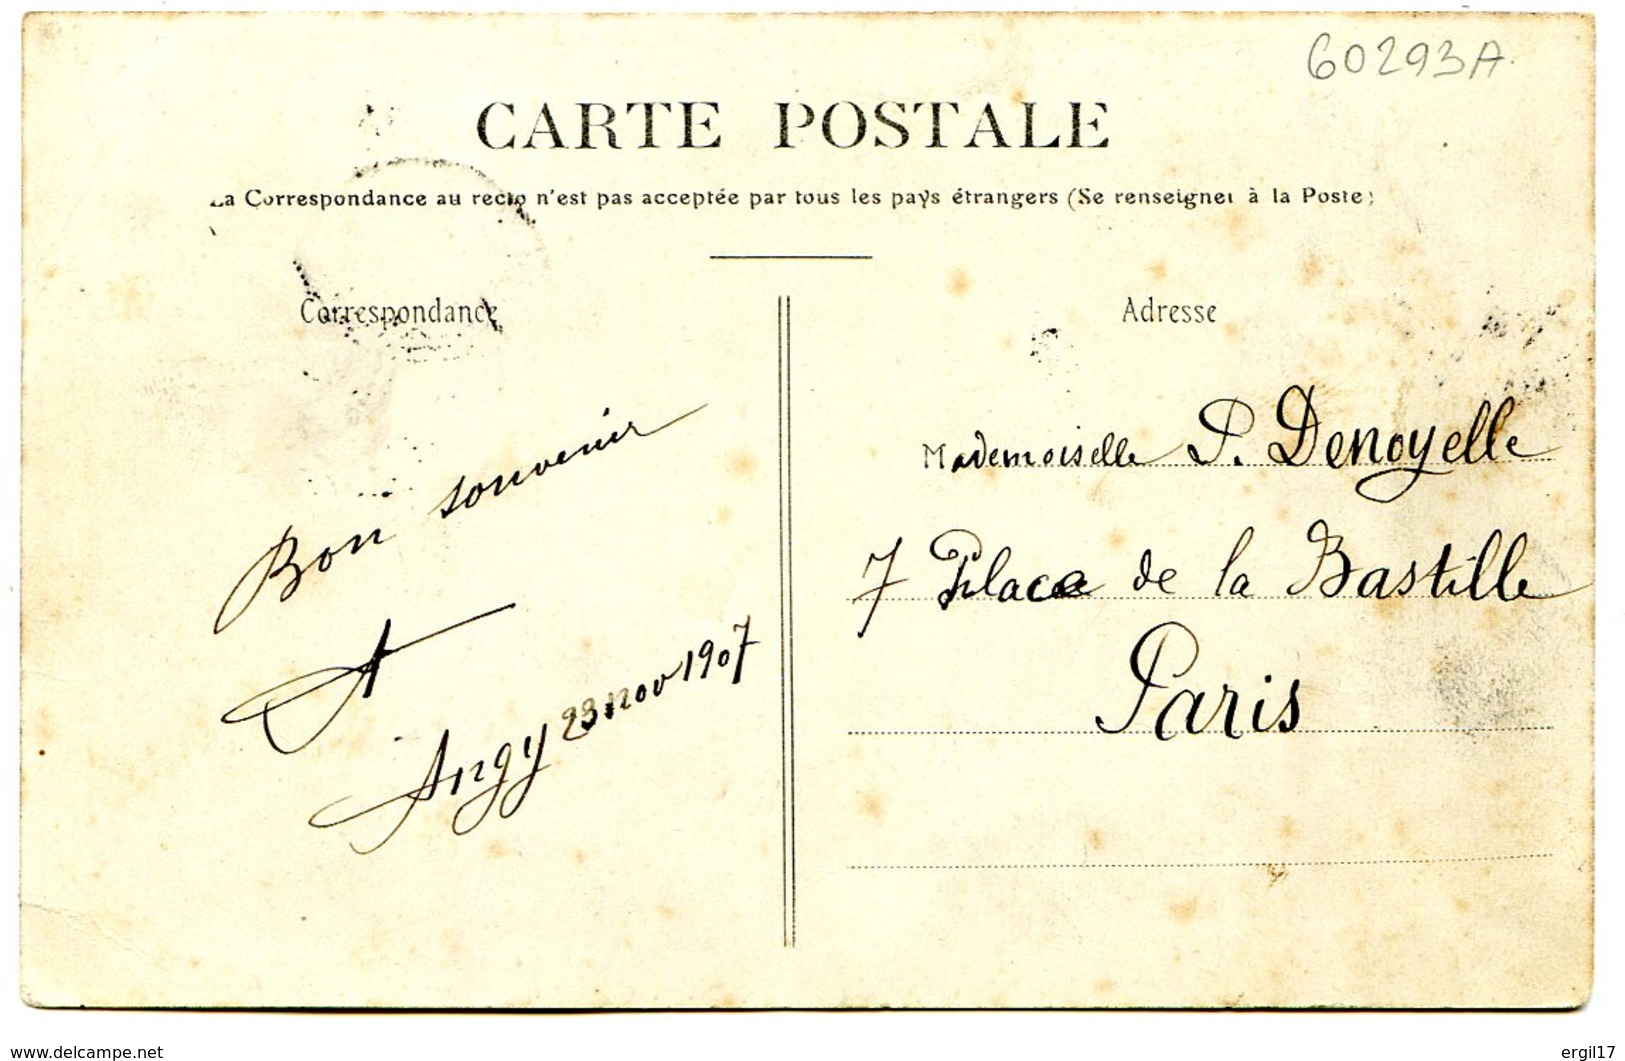 60293A
CARTE POSTALE
La Correspondance au recto n'est pas acceptée par tous les pays étrangers (Se renseigner à la Poste)
Correspondance
Bon souvenir
A
Angy 23 nov 1907
Adresse
Mademoiselle P. Denoyelle
7 Place de la Bastille
Paris
www.delcampe.net
ergil17